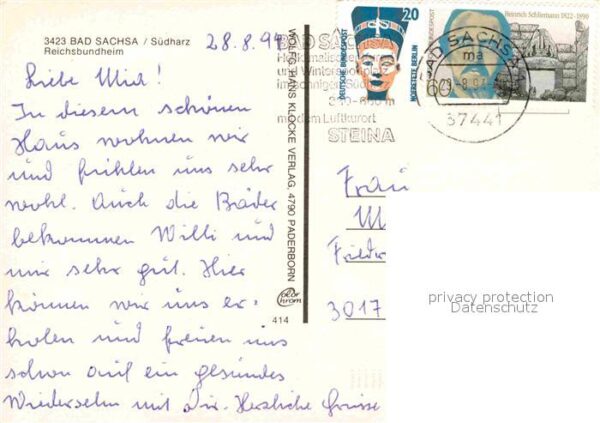 3423 BAD SACHSA / Südharz
Reichsbundheim
28.8.94
Liebe Mia!
In diesem schönen
Haus wohnen wir
und fühlen uns sehr
wohl. Auch die Bäder
bekommen Willi und
mir sehr gut. Hier
können wir uns er-
holen und freuen uns
schon auf ein gesundes
Wiedersehn mit Dir. Herzliche Grüsse
WOLFG. HANS KLOCKE VERLAG, 4790 PADERBORN
Color
chrom
414
20
DEUTSCHE BUNDESPOST
NOFRETETE BERLIN
Heinrich Schliemann 1822-1890
60
BUNDESPOST
BAD SACHSA
ma
37441
BAD SACHSA
Heilklimatischer
und Wintersport
im sonnigen Süd
m
mit dem Luftkurort
STEINA
Frau
M
Friedr
3017
privacy protection
Datenschutz